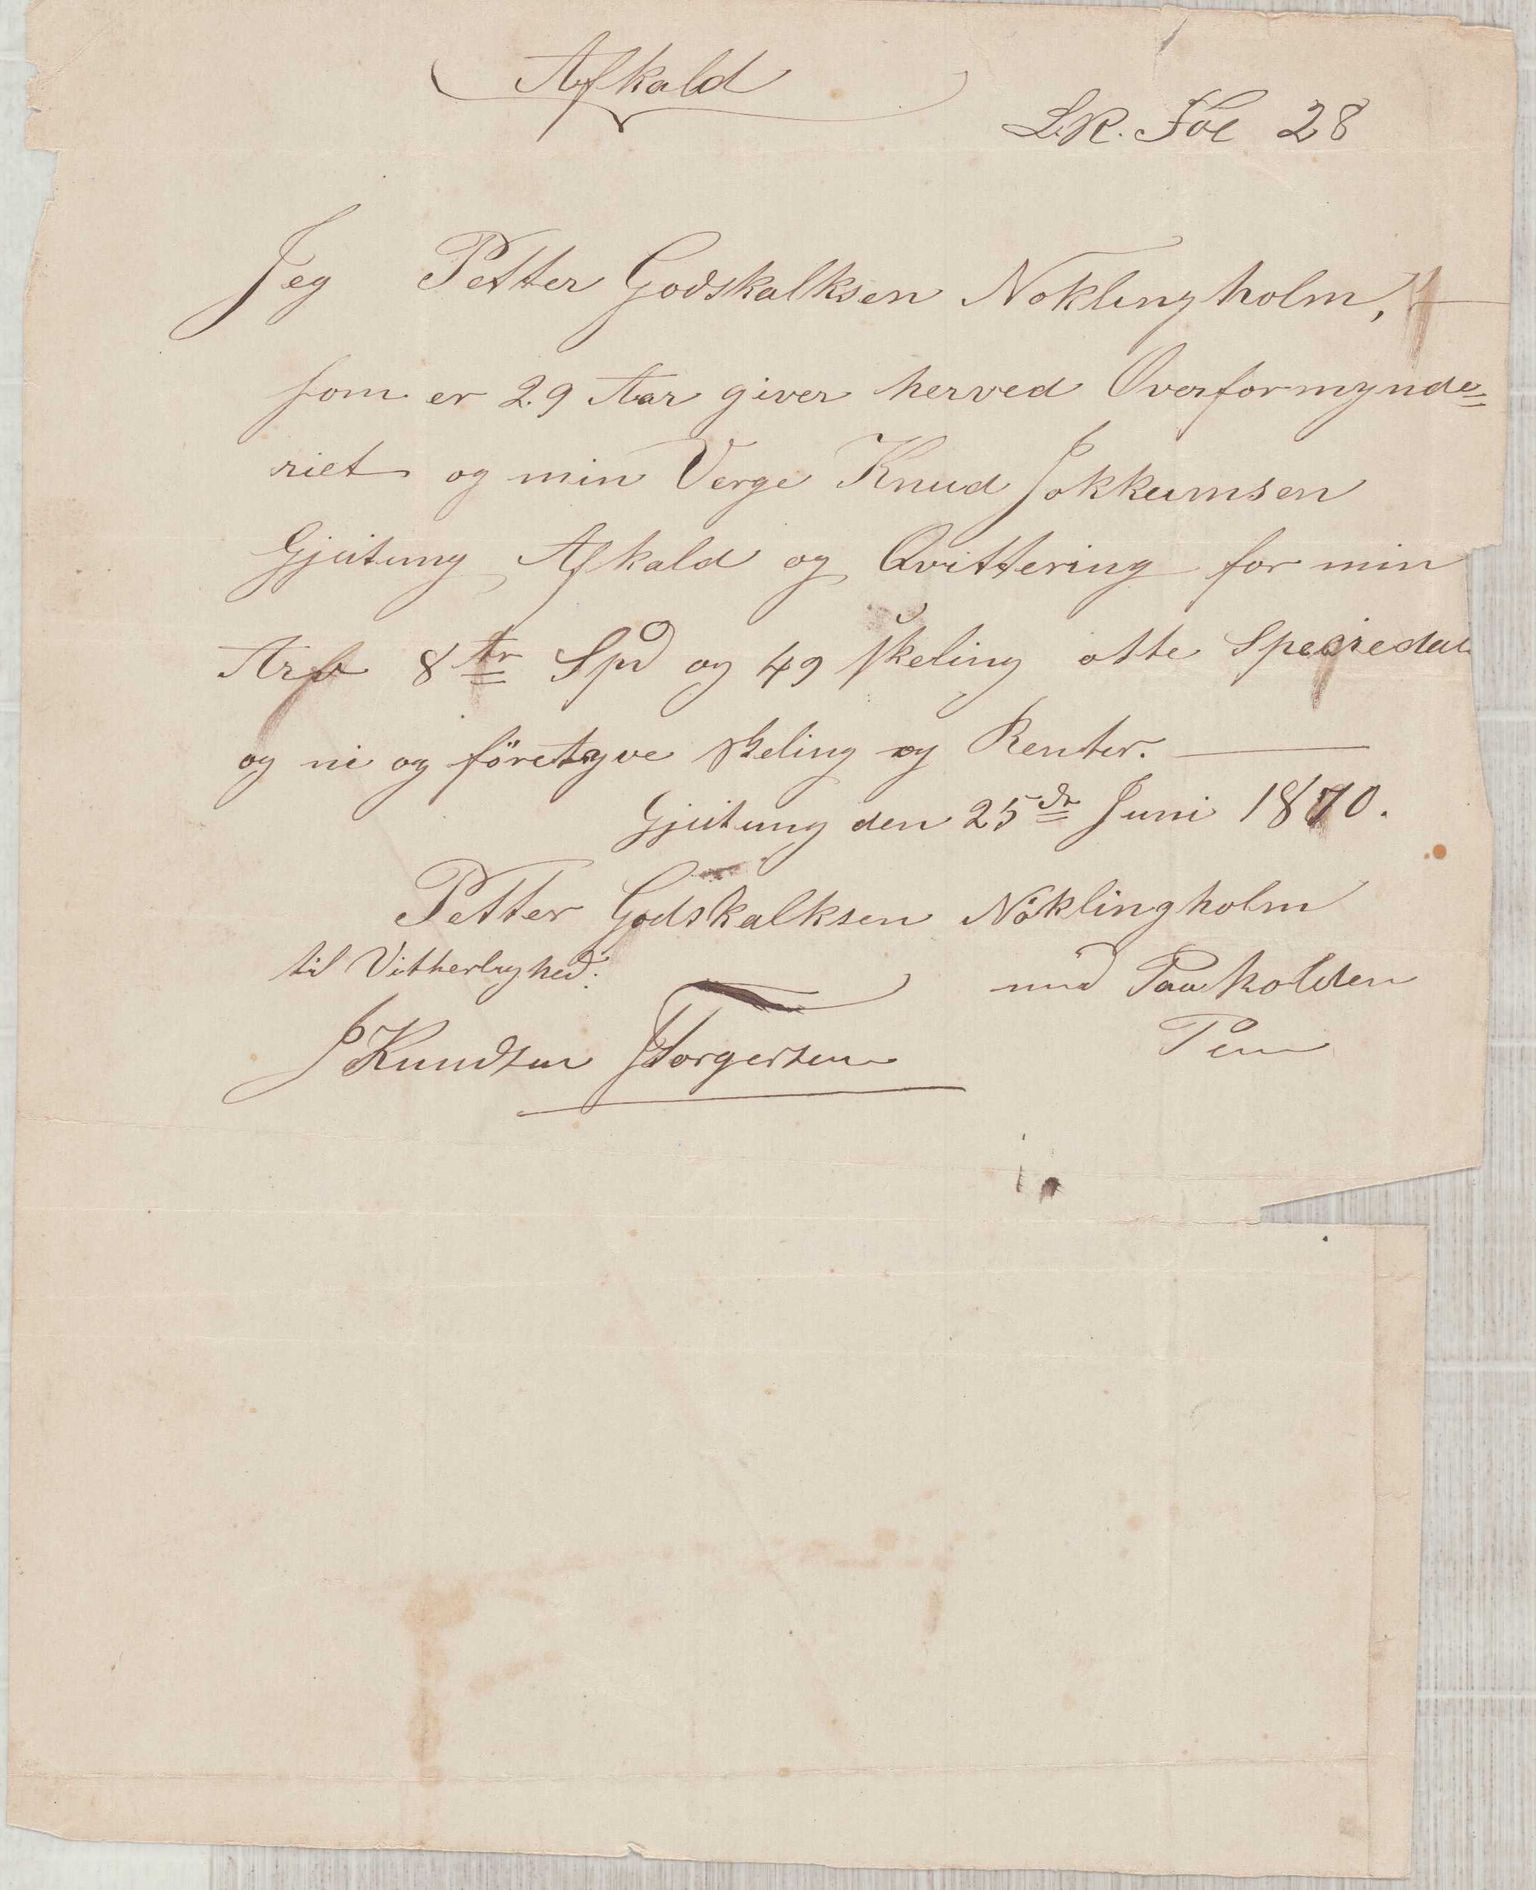 Afkald
L.R. Fol 28
Jeg Petter Godskalksen Noklingholm,
som er 29 Aar giver herved Overformynde=
riet og min Verge Knud Jokkumsen
Gjeitung Afkald og Qvittering for min
Arf 8 Spd og 49 skeling otte Speciedal
og ni og företyve skeling og Renter.
Gjeitung den 25de Juni 1870.
Petter Godskalksen Nöklingholm
til Vitterlighed: med Paaholden
J Knudsen JTorgersen Pen